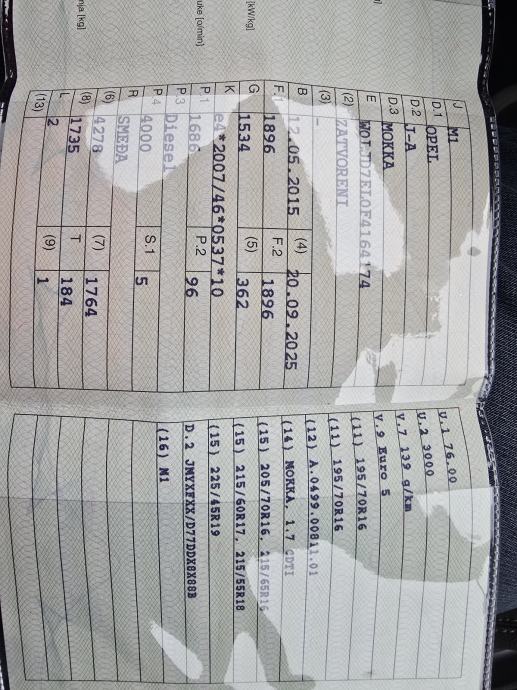 J M1
D.1 OPEL
D.2 J-A
D.3 MOKKA
E
(2) ZATVORENI
(3) -
B 12.05.2015 (4) 20.09.2025
F.1 1896 F.2 1896
G 1534 (5) 362
K e4*2007/46*0537*10
P.1 1686 P.2 96
P.3 Diesel
P.4 4000 S.1 5
R SMEĐA
(6) 4278 (7) 1764
(8) 1735 T 184
L 2 (9) 1
(13)
U.1 76.00
U.2 3000
V.7 139 g/km
V.9 Euro 5
(11) 195/70R16
(11) 195/70R16
(12) A.0499.00811.01
(14) MOKKA, 1.7 CDTI
(15) 205/70R16, 215/65R16
(15) 215/60R17, 215/55R18
(15) 225/45R19
D.2
(16) M1
[kW/kg]
[o/min]
[kg]